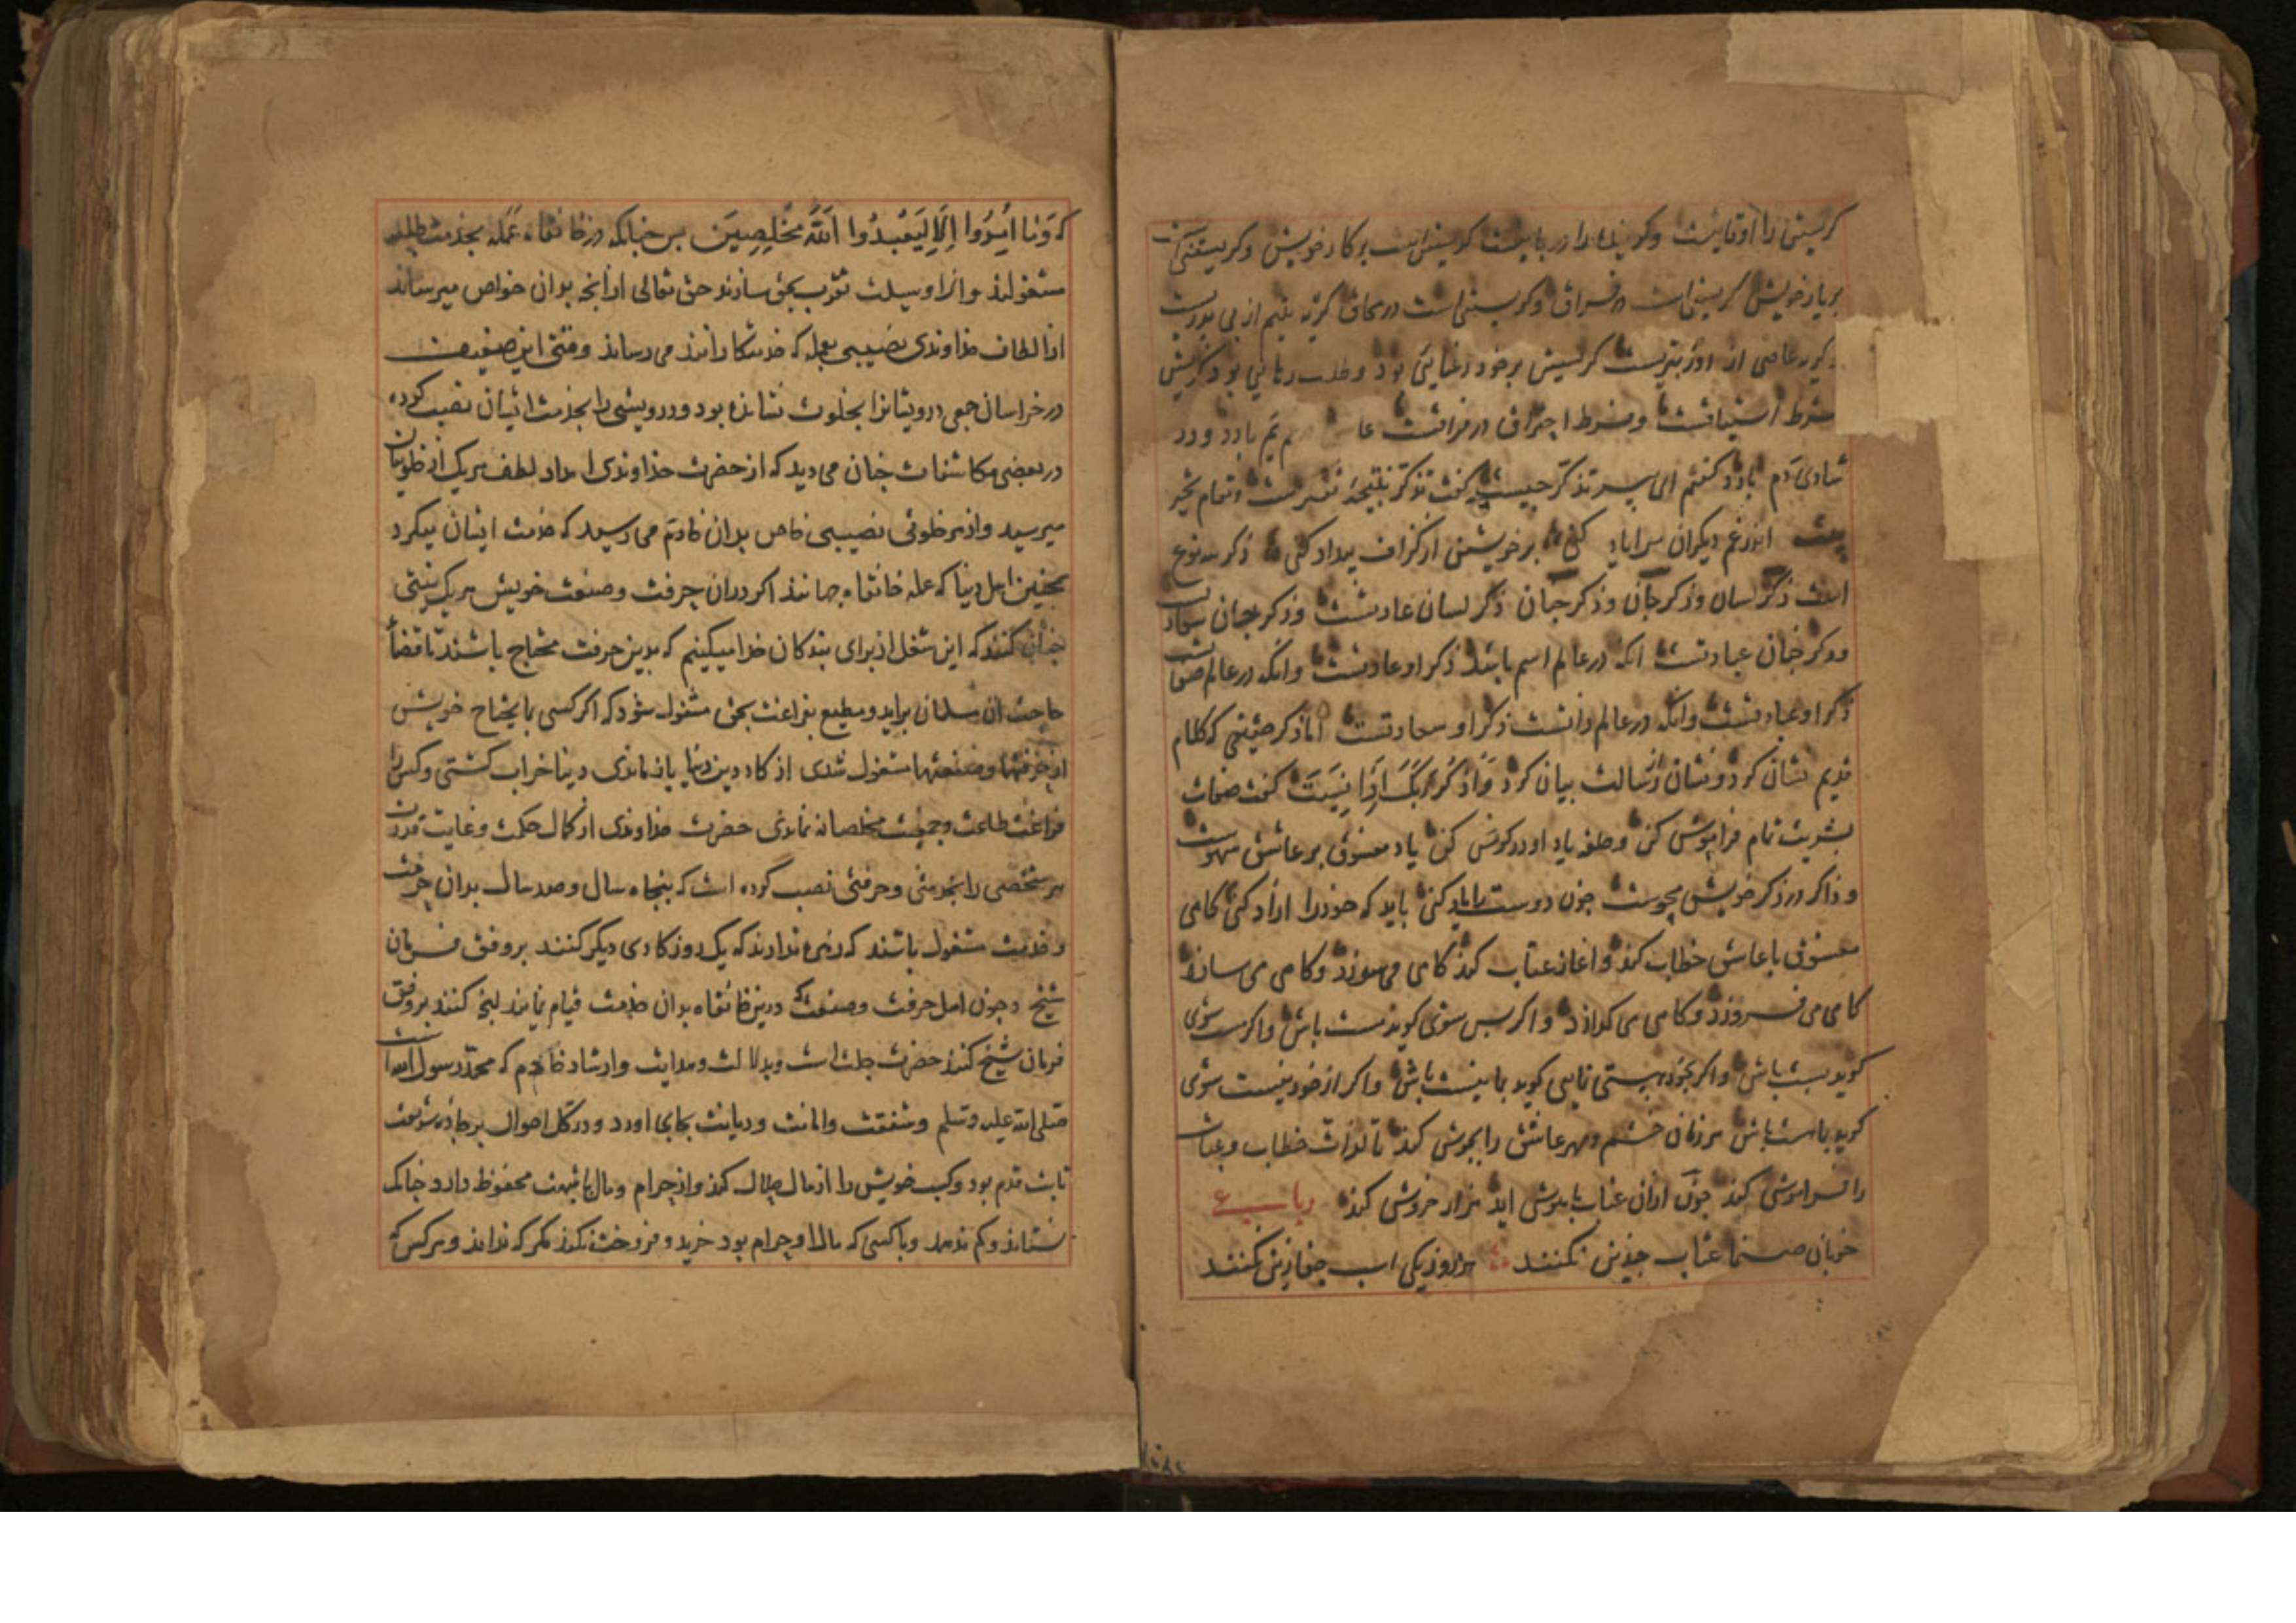 کریستن را اوقاتیست و کریستن است بر کار خویش و کریستن
بر یار خویش کریستن است در فراق و کریستن است در کریه یتیم از بی
کریه عاصی از کریستن بر خود رعنایی بود و طلب رهایی بود
شرط اشتیاقست و شرط احتراق در فراقست یادد و در
شادی یادد کفتم ای پسر تذکر چیست کفت تذکر نتیجه تفکرست و تمام
اندر غم دیکران کنی بر خویشتن از کزاف بیداد کنی ذکر سه نوع
است ذکر لسان و ذکر جان و ذکر جنان ذکر لسان عادتست و ذکر جان
و ذکر جنان عبادتست انکه در عالم اسم باشد ذکر او عادتست و انکه در عالم صفا
ذکر او عبادتست و انکه در عالم ذاتست ذکر او سعادتست اما ذکر حقیقی که کلام
قدیم نشان کرد و نشان رسالت بیان کرد وَاذْكُرْ رَبَّكَ إِذَا نَسِيتَ کفت صفات
بشریت تمام فراموش کن و حلقه یاد او در کوش کن یاد معشوق بر عاشق
و ذاکر در ذکر خویش محوست چون دوست را یاد کنی باید که خود را ازاد کنی کاهی
معشوق با عاشق خطاب کند و اغاز عتاب کند کاهی می سوزد و کاهی می سازد
کاهی می فروزد و کاهی می کدازد و اکر پس شوی کوید مست باش و اکر مست شوی
کوید پست باش و اکر بخود هستی نمایی کوید بما نیست باش و اکر از خود نیست شوی
کوید بما هست باش هر زمان خشم و مهر عاشق را بجوش کند تا لذات خطاب و عتاب
را فراموش کند چون از ان عتاب باهوش اید هزار خروش کند رباعی
خوبان صنما عتاب چندین نکنند هر روز یکی اسب جفا زین نکنند
که وَمَا أُمِرُوا إِلَّا لِيَعْبُدُوا اللَّهَ مُخْلِصِينَ پس چنانکه در خانقاه عمله بخدمت
مشغولند و انرا وسیلت تقرب بحق سازند حق تعالی از انچه بدان خواص میرساند
از الطاف خداوندی نصیبی بعمله که خدمتکارانند می رساند وقتی این ضعیف
در خراسان جمعی درویشانرا بخلوت نشانده بود و درویشی را بخدمت ایشان نصب کرده
در بعضی مکاشفات چنان می دید که از حضرت خداوندی امداد لطف بهر یک از خلوتیان
میرسید و از هر خلوتی نصیبی خاص بدان خادم می رسید که خدمت ایشان میکرد
همچنین اهل دنیا که عمله خانقاه جهانند اکر در ان حرفت و صنعت خویش هر یک نیتی
چنان کنند که این شغل از برای بندکان خدا میکنیم که بدین حرفت محتاج باشند تا قضا
حاجت ان مسلمان براید و مطیع بفراغت بحق مشغول شود که اکر کسی بمایحتاج خویش
از حرفتها و صنعتها مشغول شدی از کار دین و دنیا باز ماندی دنیا خراب کشتی و کس را
فراغت طاعت و جمعیت مخلصانه نماندی حضرت خداوندی از کمال حکمت و غایت قدرت
هر شخصی را بخدمتی و حرفتی نصب کرده است که پنجاه سال و صد سال بدان حرفت
و خدمت مشغول باشند که زهره ندارند که یک روز کاری دیکر کنند بر وفق فرمان
شیخ و چون اهل حرفت و صنعت که درین خانقاه بدان خدمت قیام نمایند کنند بر وفق
فرمان شیخ کنند حضرت جلت است و بدلالت و هدایت و ارشاد خادم که محمد رسول الله است
صلی الله علیه و سلم و شفقت و امانت و دیانت بجای اورد و در کل احوال بر جاده شریعت
ثابت قدم بود و کسب خویش را از مال حلال کند و از حرام و مال باشبهت محفوظ دارد چنانک
نستاند و کم ندهد و با کسی که مال او حرام بود خرید و فروخت نکند مکر که نداند و هر کس که